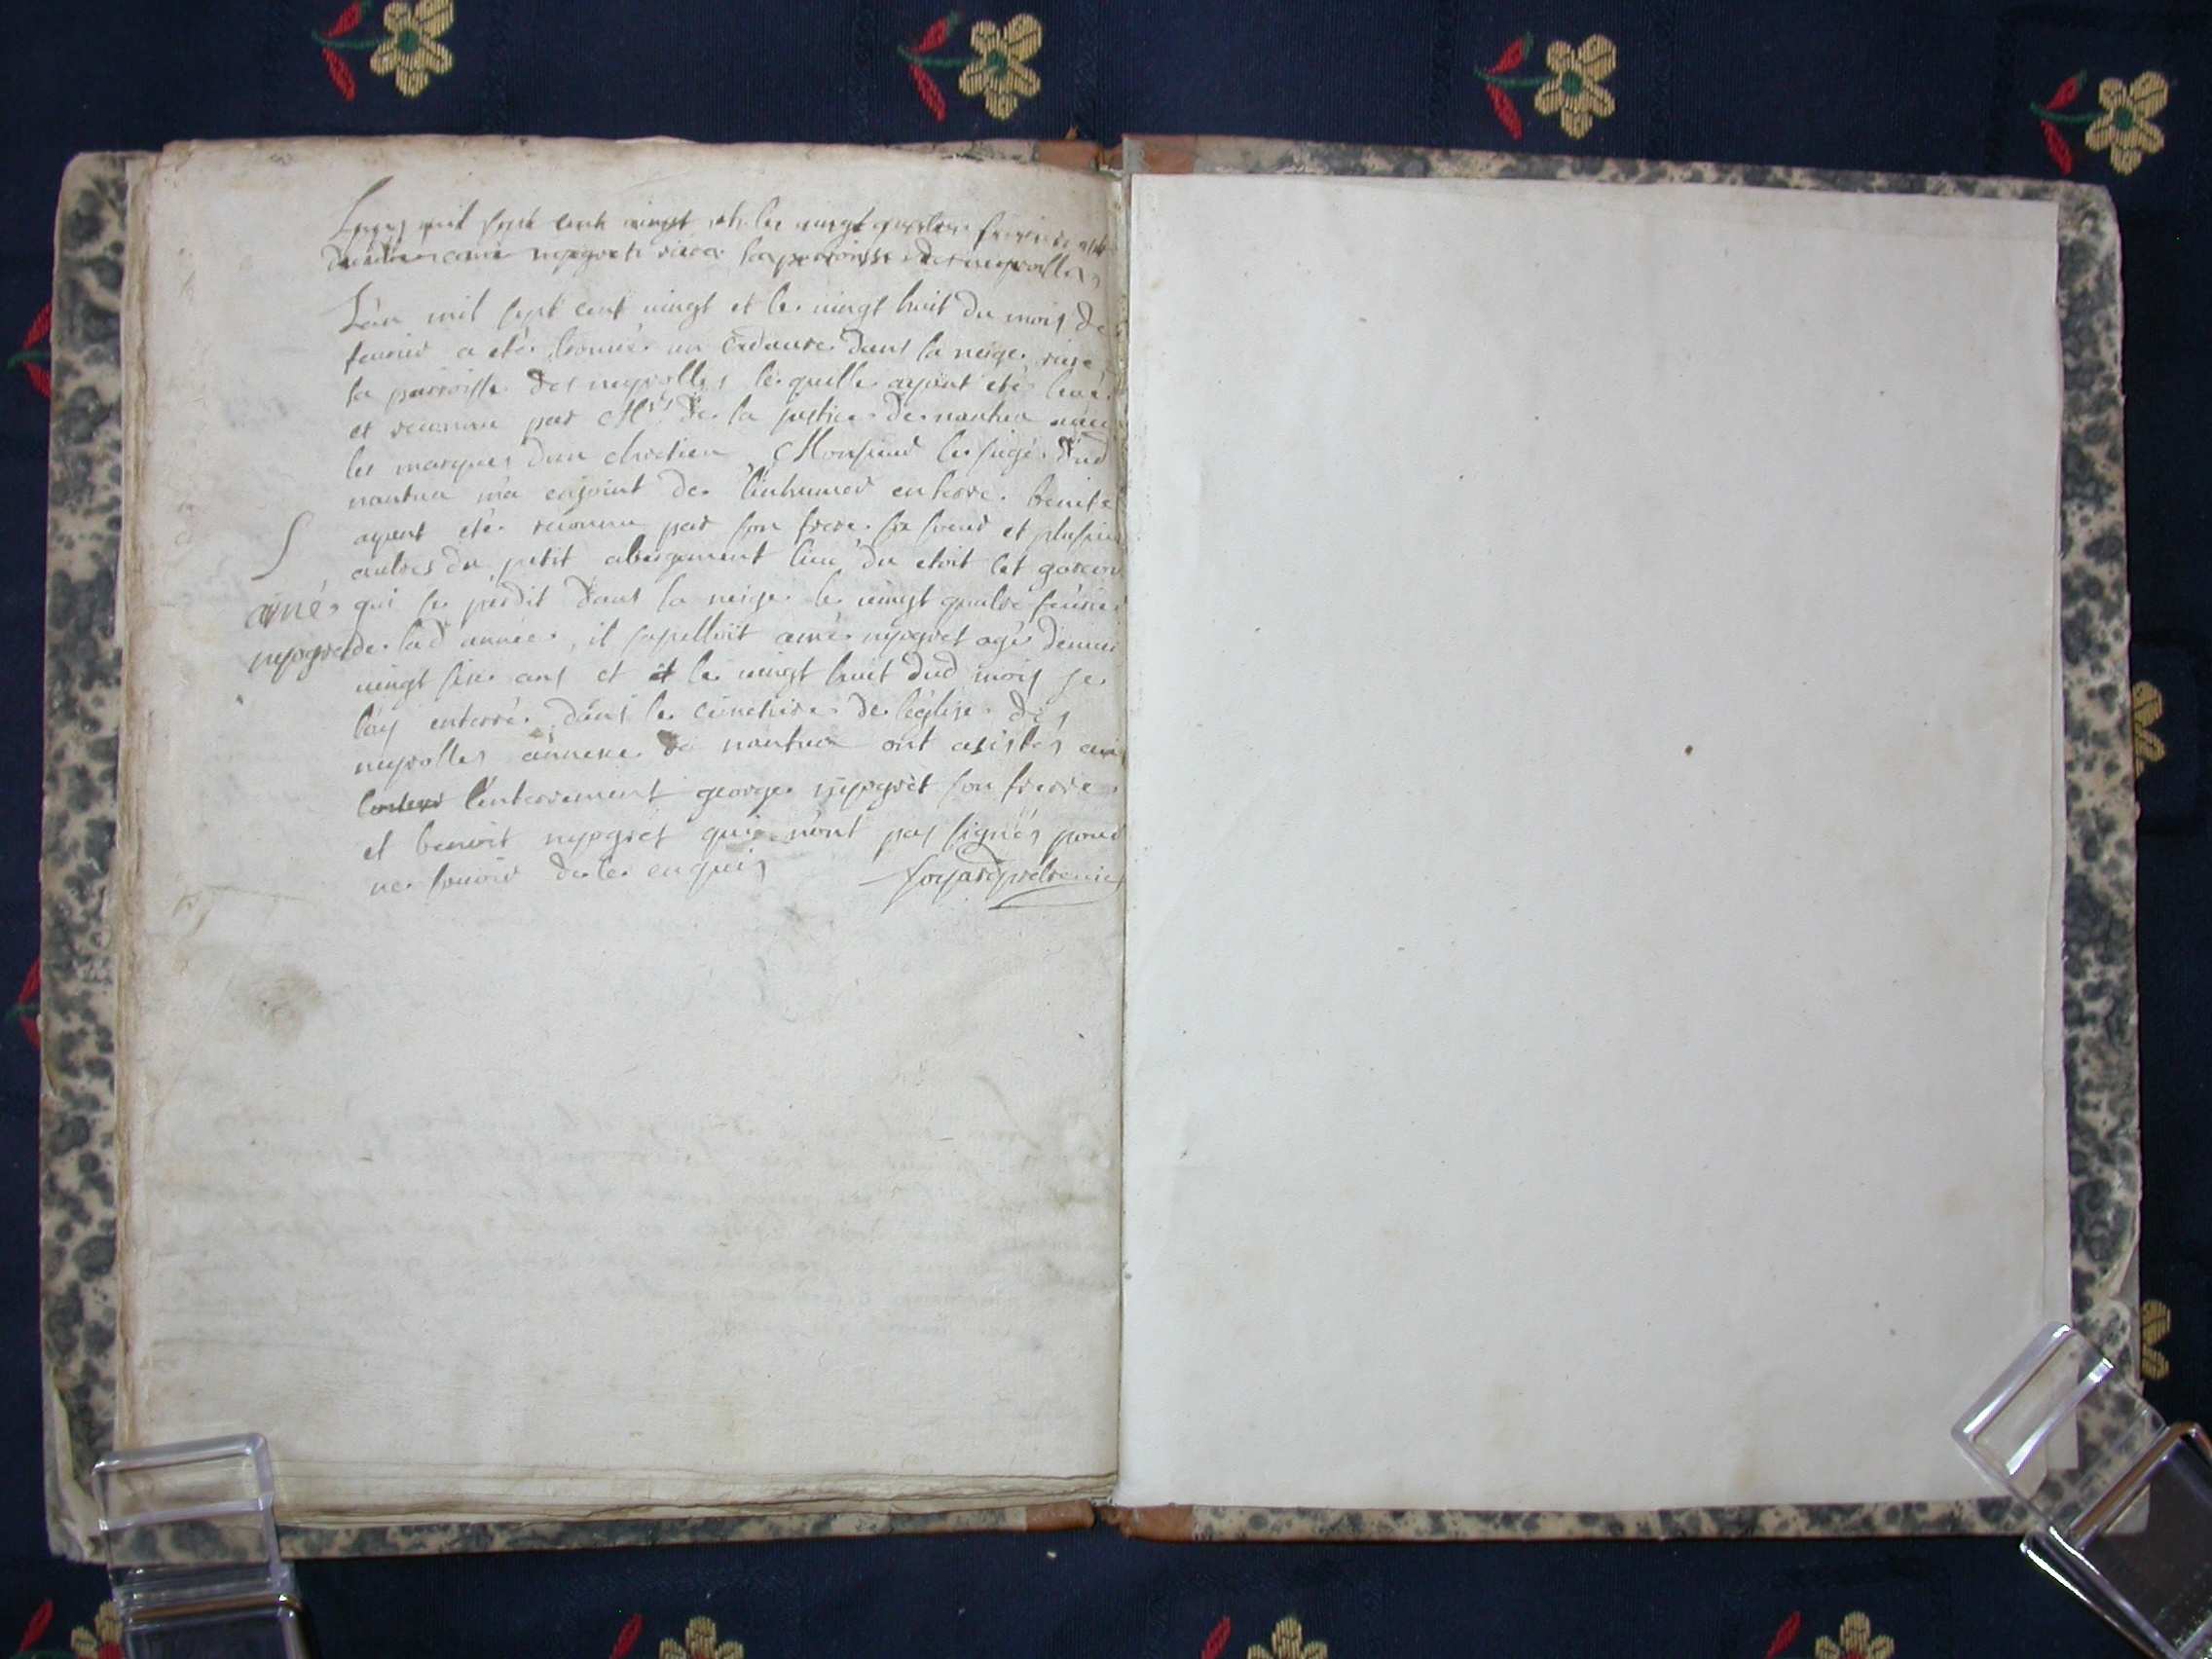 mil sept cent vingt et le vingt quatre
aimé nypgret riere la parroisse des neyrolles
L'an mil sept cent vingt et le vingt huit du mois de
feuvrier a eté trouvé un cadavre dans la neige riere
la parroisse des neyrolles lequelle ayant eté levé
et reconnu par Mrs de la justice de nantua avec
les marques d'un chretien, Monsieur le juge dud
nantua m'a enjoint de l'inhumer en terre benite
ayant eté reconnu par son frere sa soeur et plusieurs
autres du petit abergement lieu du etoit cet garcon
qui se perdit dans la neige le vingt quatre feuvrier
de lad année, il sapelloit aimé nypgret agé d'environ
vingt six ans et le vingt huit dud mois je
l'ay enterré dans le cimetiere de l'église des
neyrolles annexe de nantua ont asistés
l'enterrement george nypgret son frerre
et benoit nypgret qui n'ont pas signés pour
ne scavoir de ce enquis
S
aimé
nypgret